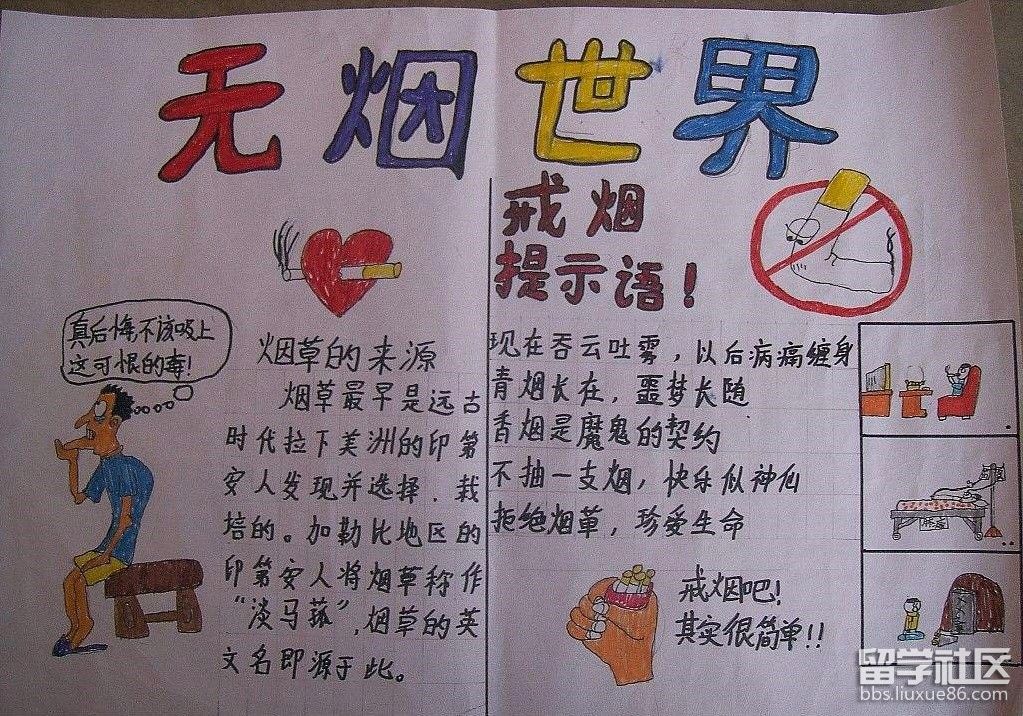 无烟世界
真后悔不该吸上
这可恨的毒!
烟草的来源
烟草最早是远古
时代拉下美洲的印第
安人发现并选择.栽
培的。加勒比地区的
印第安人将烟草称作
“淡马菰”,烟草的英
文名即源于此。
戒烟
提示语!
现在吞云吐雾,以后病痛缠身
青烟长在,噩梦长随
香烟是魔鬼的契约
不抽一支烟,快乐似神仙
拒绝烟草,珍爱生命
戒烟吧!
其实很简单!!
肺癌
留学社区
bbs.liuxue86.com